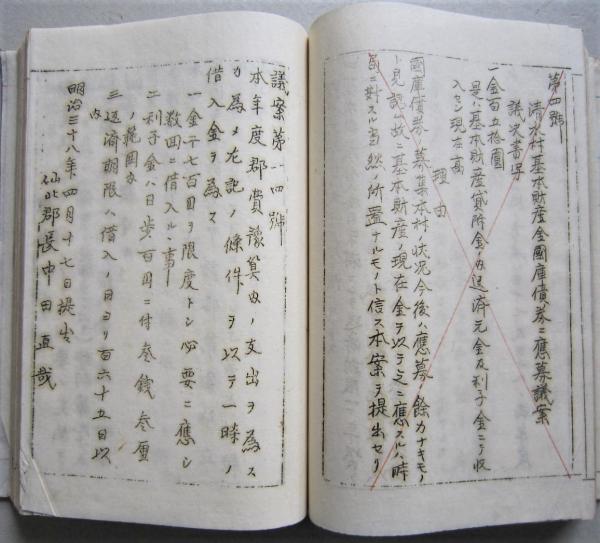 第四號
清水村基本財産金國庫債券ニ應募議案
議決書寫
一金百五拾圓
是ハ基本財産貸附金ノ内返済元金及利子金ニテ収
入セシ現在高
理由
國庫債券募集本村ノ状況今後ハ應募ノ餘力ナキモノ
ト見認ム故ニ基本財産ノ現在金ヲ以テ之ニ應スルハ時
局ニ對スル当然ノ所置ナルモノト信ス本案ヲ提出セリ
議案第一四號
本年度郡費豫算内ノ支出ヲ為ス
カ為メ左記ノ條件ヲ以テ一時ノ
借入金ヲ為ス
一金千七百圓ヲ限度トシ必要ニ應シ
数回ニ借入ルヽ事
二利子金ハ日歩百円ニ付参銭参厘
ノ範圍内
三返済期限ハ借入ノ日ヨリ百六十五日以
内
明治三十八年四月十七日提出
仙北郡長中田直哉